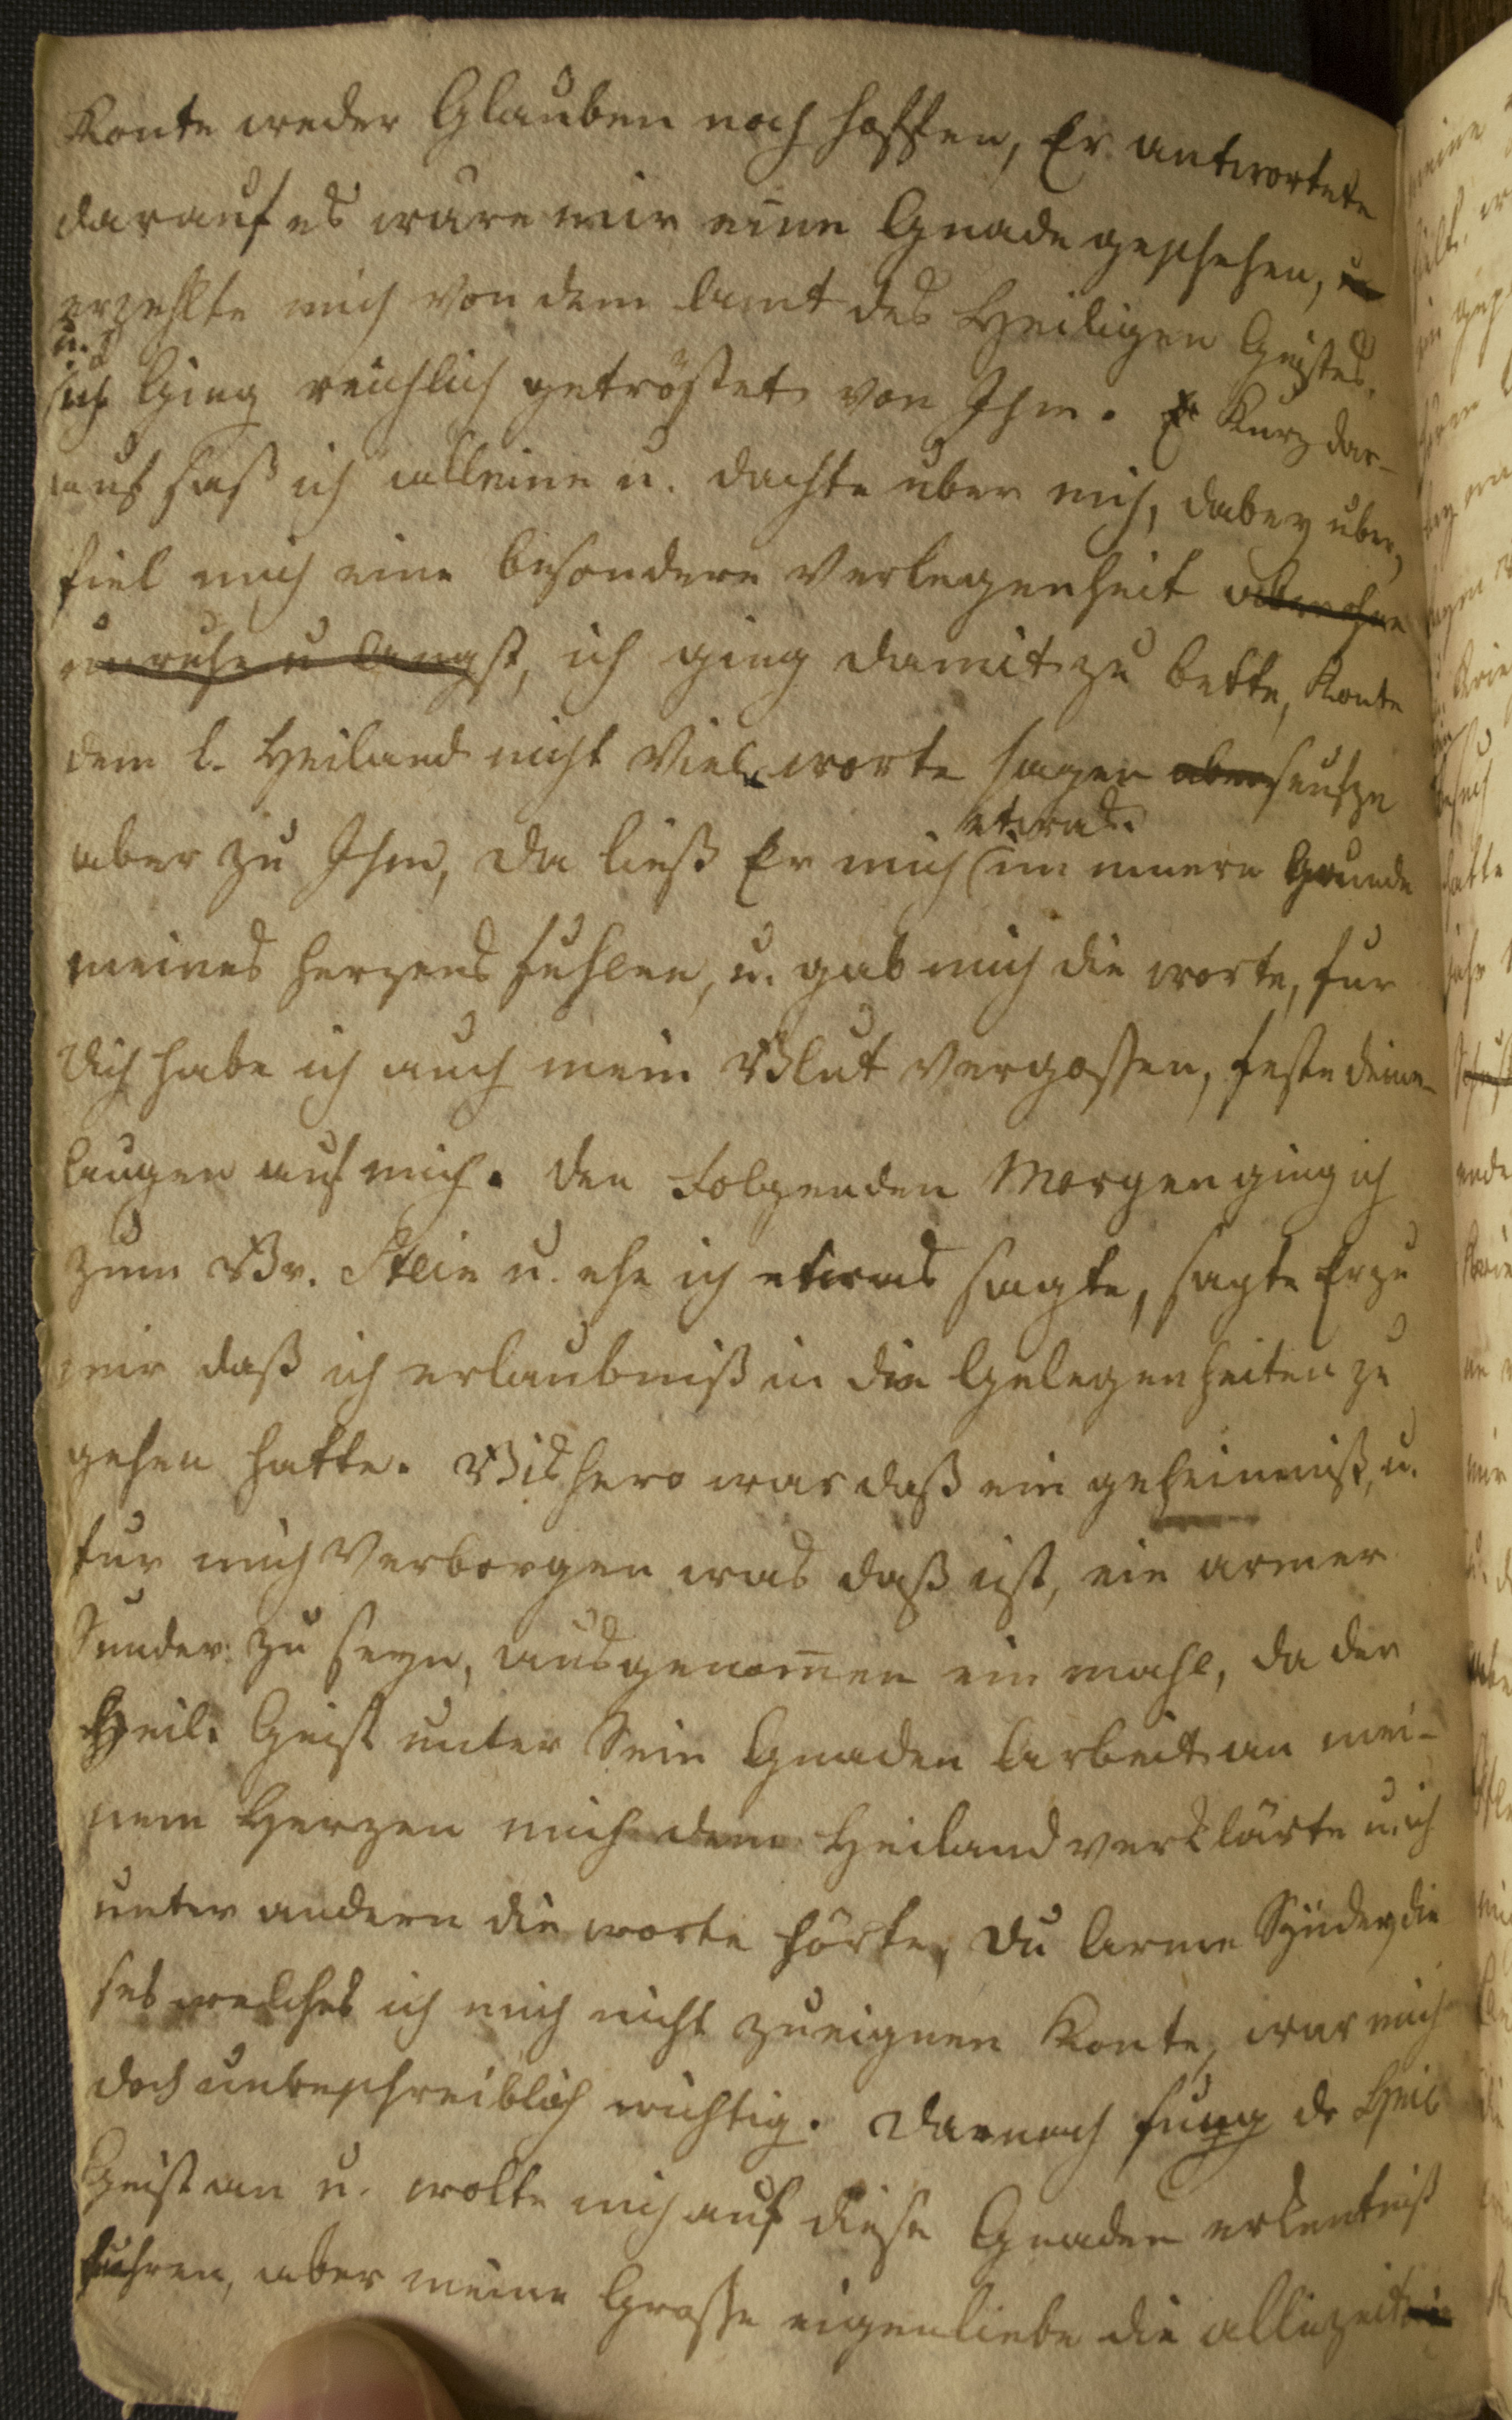 Konte weder Glauben noch hoffen, Er antwortete
darauf es ware mir eine Gnade geschehen, u
erzehlte mich von dem Amt des Heiligen Geistes.
u. ich Ging reichlich getröstet von Ihm. Er Kurz dar-
auf saß ich alleine u. dachte uber mich, dabey uber-
fiel mich eine besondere Verlegenheit
unruhe u Angst, ich ging damit zu bette, Konte
dem l. Heiland nicht Viel worte sagen aber seufze
etwas.
aber zu Ihm, da ließ Er mich im innern Grunde
meines herzens fuhlen, u. gab mich die worte, fur
dich habe ich auch mein Blut Vergossen, feste deine
Augen auf mich. den folgenden Morgen ging ich
zum Br. Stein u. ehe ich etwas sagte, sagte Er zu
mir daß ich erlaubniß in die Gelegenheiten zu
gehen hatte. Bishero war daß ein geheimniß, u.
fur mich Verborgen was daß ist, ein armer
Sunder zu seyn, ausgenom̅en ein mahl, da der
Heil. Geist unter Sein Gnaden Arbeit an mei-
nem Herzen mich dem Heiland verklärte u ich
unter andern die worte hörte, Du Arme Sünder, die
ses welches ich mich nicht zueignen Konte, war mich
doch unbeschreiblich wichtig. darnach fung de Heil
Geist an u. wolte mich auf diese Gnaden erkentniß
fuhren, aber meine Grosse eigenliebe die allezeit